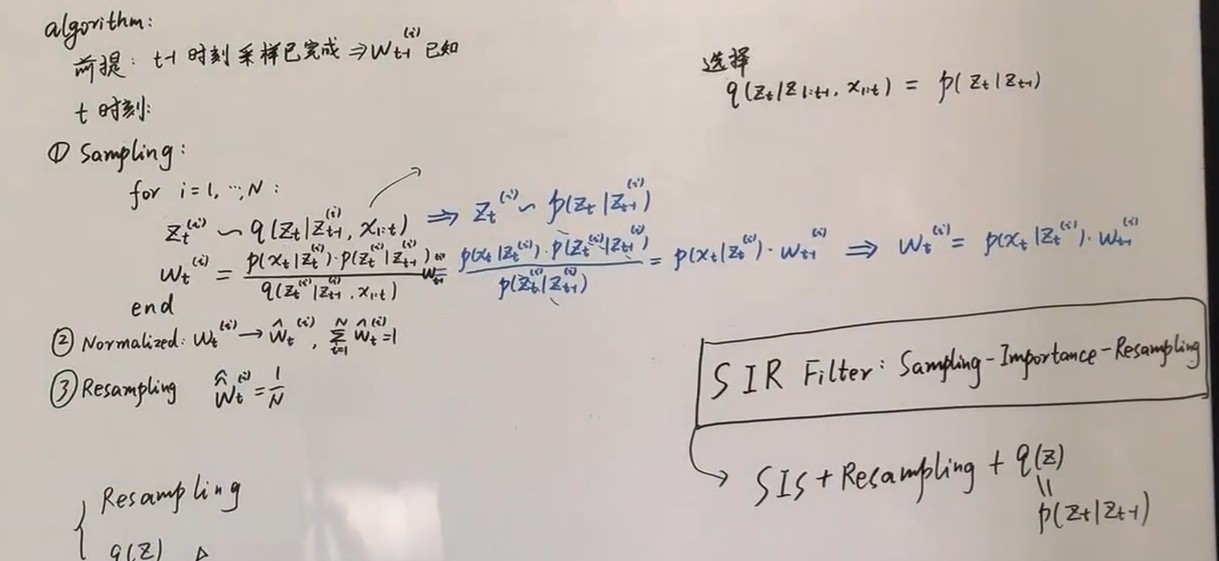 algorithm:
前提: t-1 时刻 采样已完成 ⇒ W_{t-1}^{(i)} 已知
t 时刻:
① Sampling:
for i=1, ⋯, N :
Z_t^{(i)} ∽ q(Z_t|Z_{t-1}^{(i)}, X_{1:t}) ⇒ Z_t^{(i)} ∽ p(Z_t|Z_{t-1}^{(i)})
W_t^{(i)} = \frac{p(X_t|Z_t^{(i)})·p(Z_t^{(i)}|Z_{t-1}^{(i)})}{q(Z_t^{(i)}|Z_{t-1}^{(i)}, X_{1:t})} W_{t-1}^{(i)} = \frac{p(X_t|Z_t^{(i)})·p(Z_t^{(i)}|Z_{t-1}^{(i)})}{p(Z_t^{(i)}|Z_{t-1}^{(i)})} = p(X_t|Z_t^{(i)})·W_{t-1}^{(i)} ⇒ W_t^{(i)} = p(X_t|Z_t^{(i)})·W_{t-1}^{(i)}
end
② Normalized: W_t^{(i)} → \hat{W}_t^{(i)}, \sum_{t=1}^{N} \hat{W}_t^{(i)}=1
③ Resampling \hat{\hat{W}}_t^{(i)} = \frac{1}{N}
Resampling
q(Z)
选择
q(Z_t|Z_{1:t-1}, X_{1:t}) = p(Z_t|Z_{t-1})
SIR Filter: Sampling-Importance-Resampling
→ SIS + Resampling + q(Z)
||
p(Z_t|Z_{t-1})